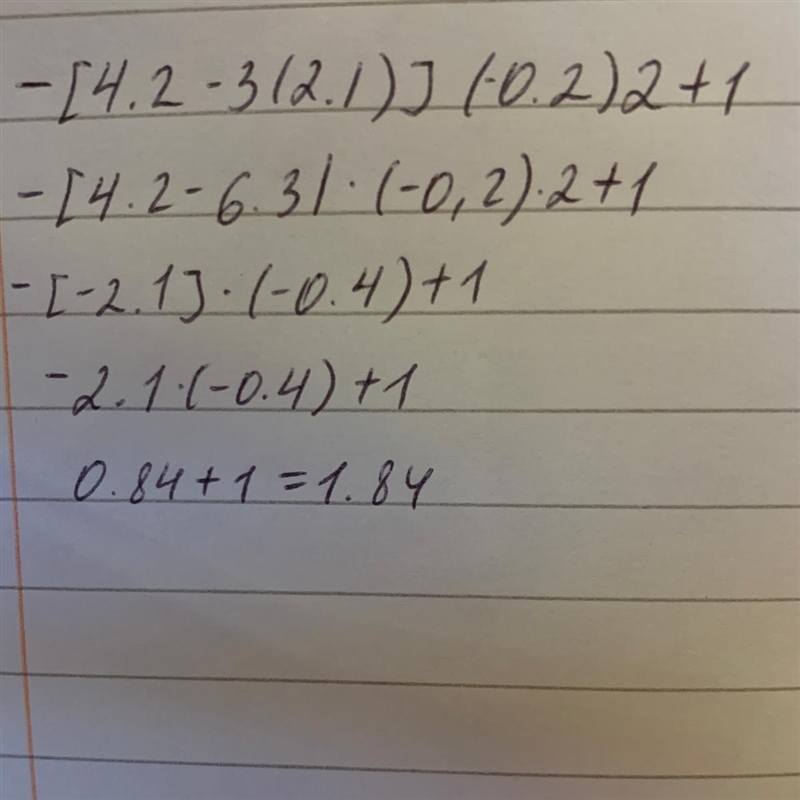 -[4.2-3(2.1)] (-0.2)2+1
-[4.2-6.3|·(-0,2)·2+1
-[-2.1]·(-0.4)+1
-2.1·(-0.4)+1
0.84+1=1.84